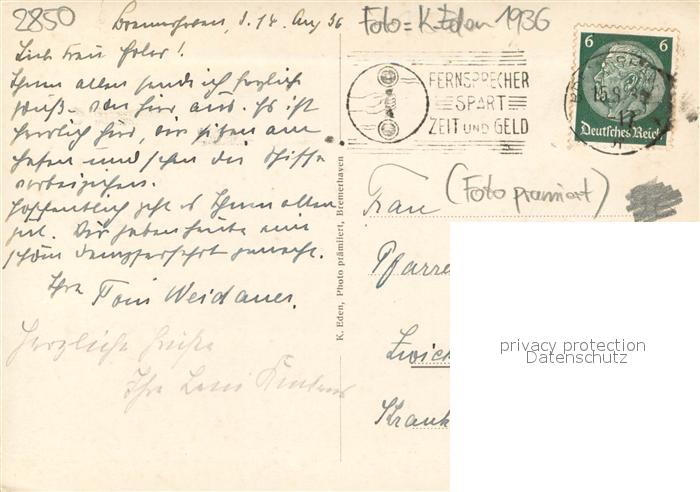 2850
Bremerhaven, d. 14. Aug 36
Foto = K. Eden 1936
Lieb Frau Holer!
Ihnen allen sende ich herzlich
Grüß von hier aus. Es ist
herrlich hier, wir sitzen am
Hafen und sehen die Schiffe
vorbeiziehen.
Hoffentlich geht es Ihnen allen
gut. Wir haben heute eine
schöne Dampferfahrt gemacht.
Ihre Toni Weidauer.
Herzliche Grüße
Ihre
FERNSPRECHER
SPART
ZEIT UND GELD
6 6
Deutsches Reich
K. Eden, Photo prämiiert, Bremerhaven
(Foto prämiert)
Frau
Pfarre
Zwick
Krank
privacy protection
Datenschutz